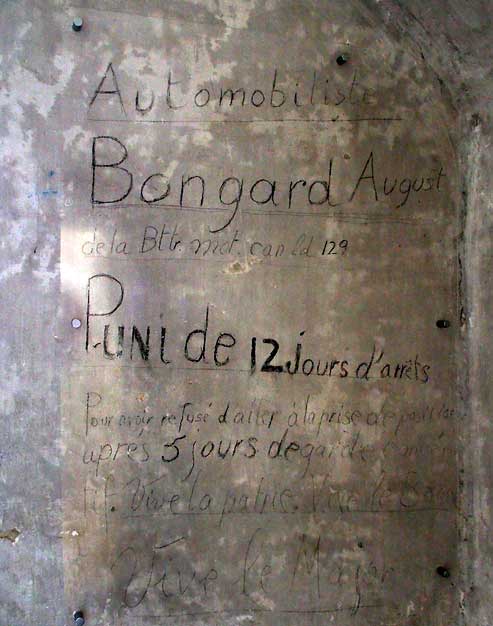 Automobiliste
Bongard August
de la Bttr. mot. can ld 129
Puni de 12 jours d'arrêts
Pour avoir refusé d'aller à la prise de
après 5 jours de garde
tif. Vive la patrie. Vive le
Vive le Major